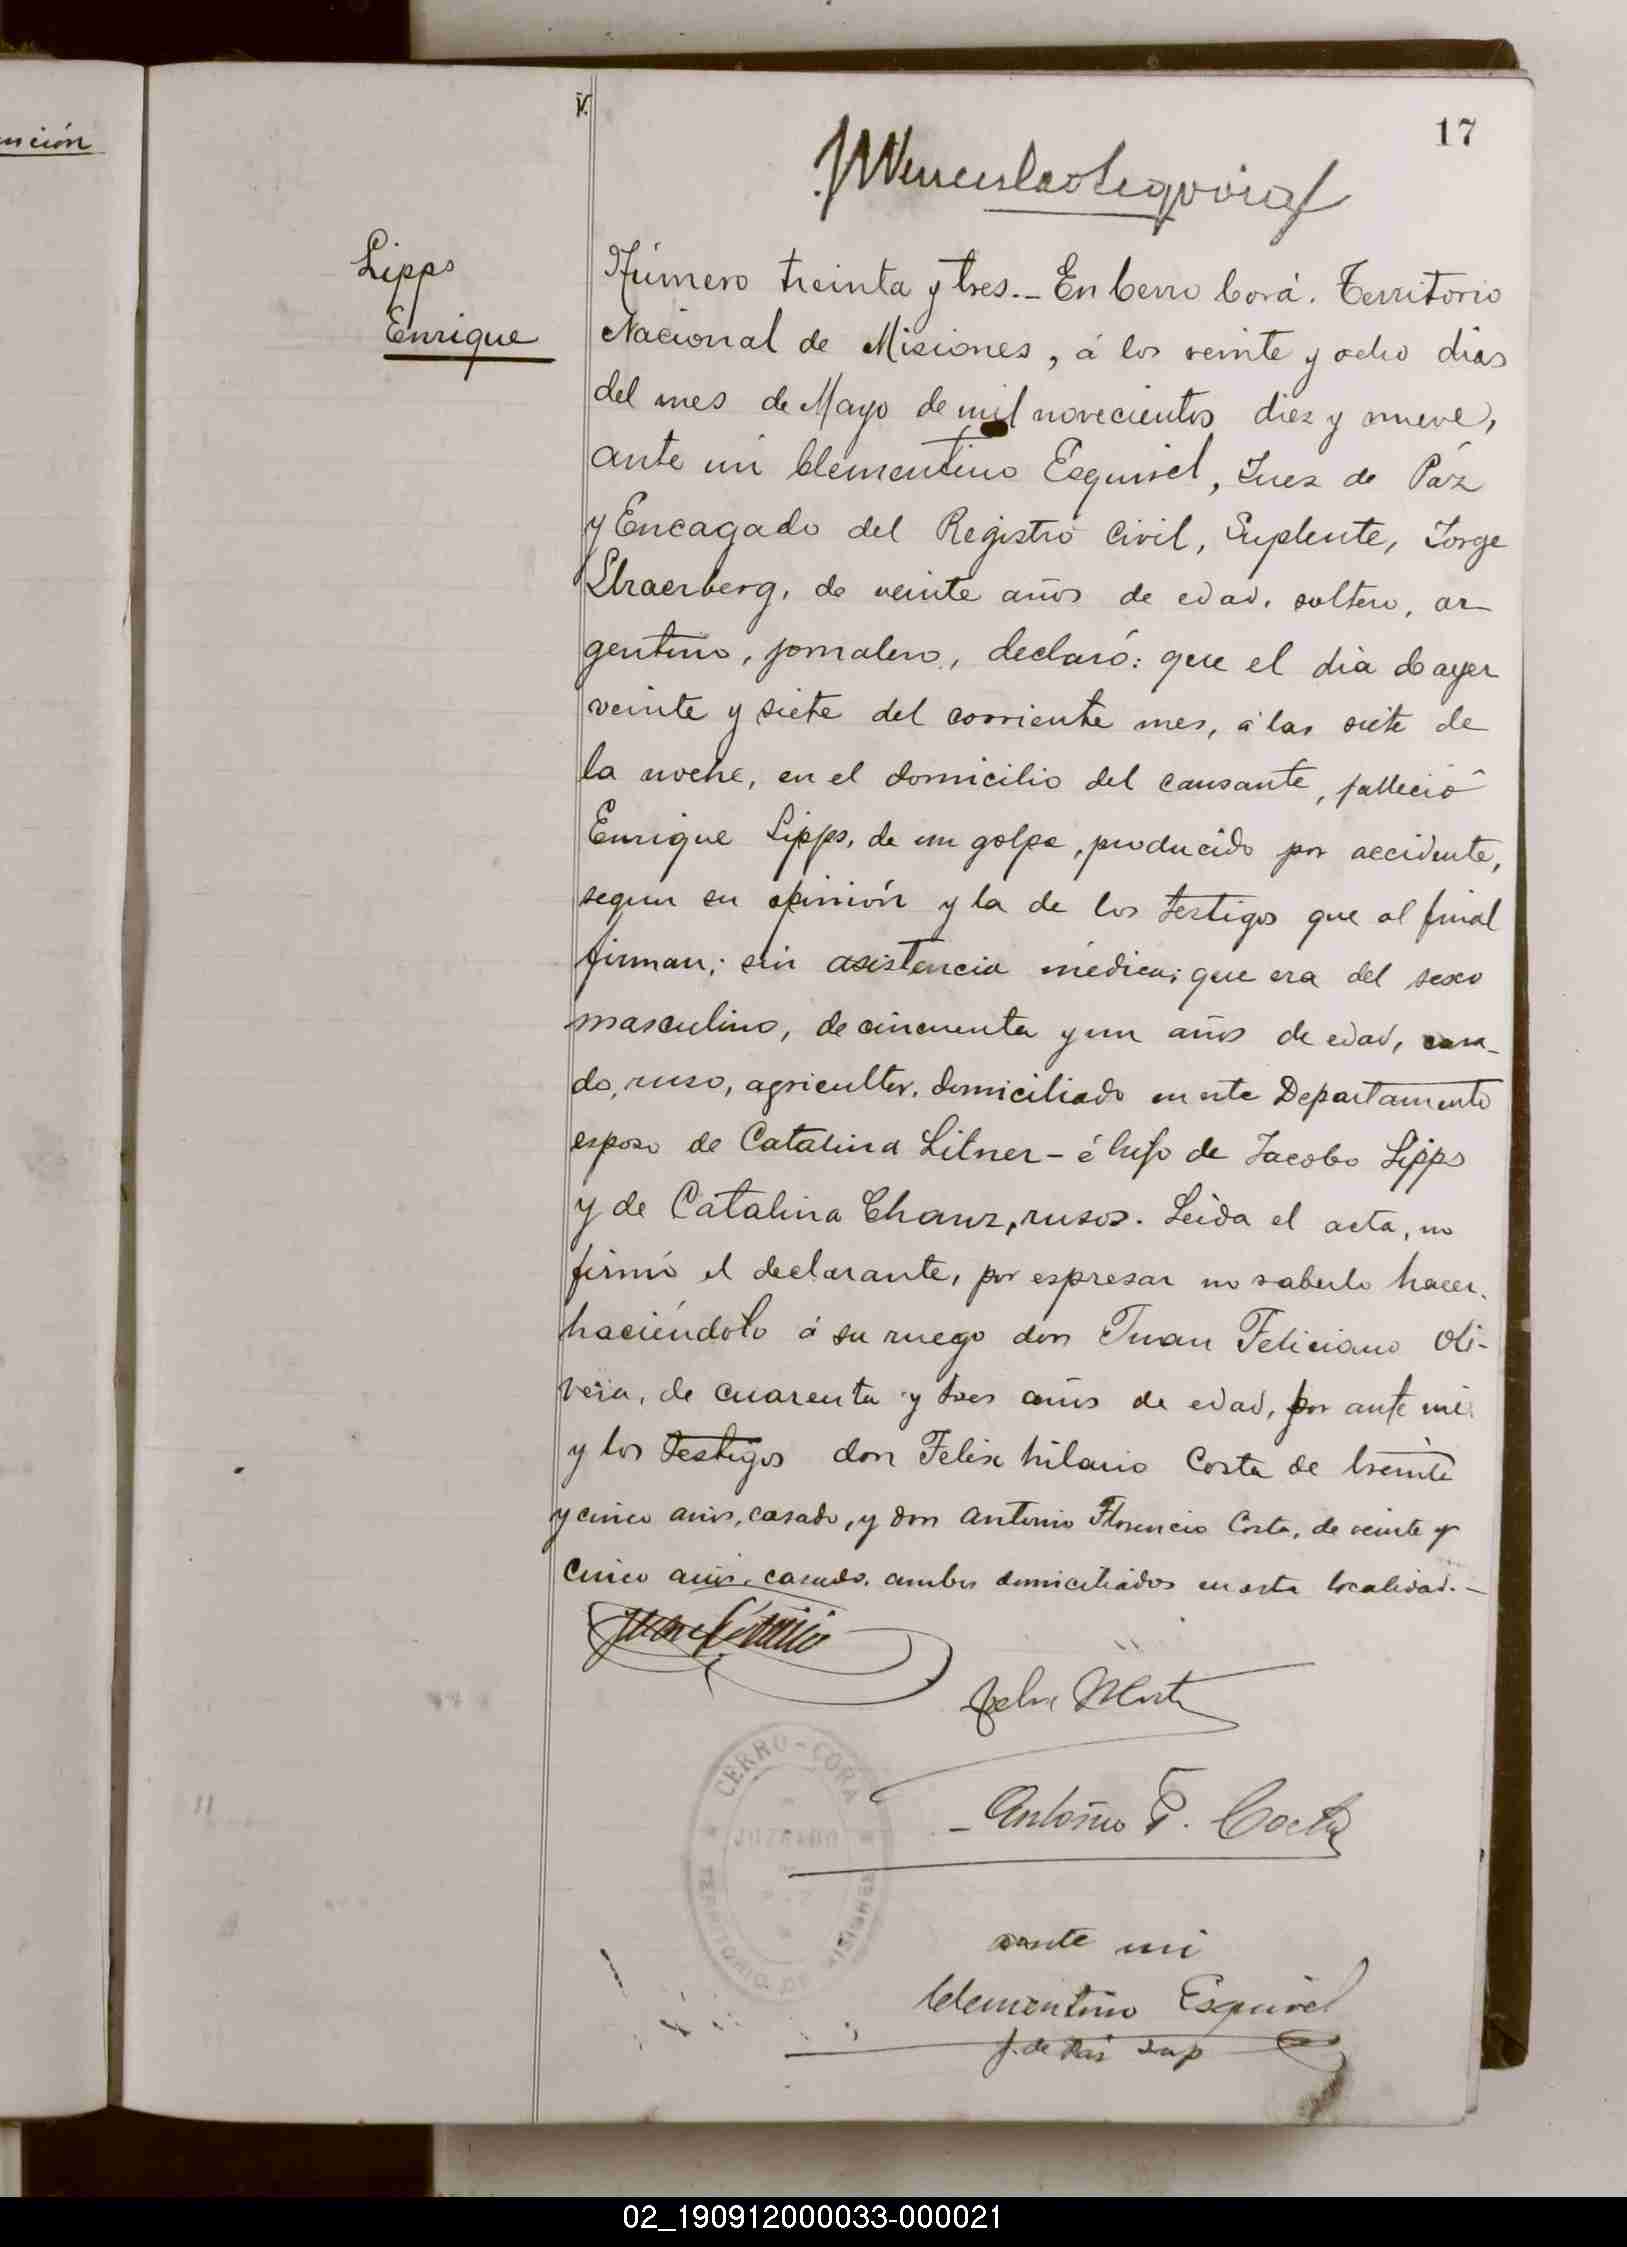 unción
V.
17
Lipps
Enrique
Número treinta y tres._ En Cerro Corá. Territorio
Nacional de Misiones, á los veinte y ocho dias
del mes de Mayo de mil novecientos diez y nueve,
ante mi Clementino Esquivel, Juez de Páz
y Encagado del Registro Civil, Suplente, Jorge
de veinte años de edad, soltero, ar-
gentino, jornalero, declaró: que el dia de ayer
veinte y siete del corriente mes, á las siete de
la noche, en el domicilio del causante, falleció
Enrique Lipps, de un golpe, producido por accidente,
segun su opinión y la de los testigos que al final
firman; sin asistencia médica; que era del sexo
masculino, de cincuenta y un años de edad, casa-
do, ruso, agricultor, domiciliado en este Departamento
esposo de Catalina Litner - é hijo de Jacobo Lipps
y de Catalina Chanz, rusos. Leida el acta, no
firmó el declarante, por espresar no saberlo hacer,
haciéndolo á su ruego don Juan Feliciano Oli-
veira, de cuarenta y tres años de edad, por ante mi
y los testigos don Felix Hilario Costa de treinta
y cinco años, casado, y don Antonio Florencio Costa, de veinte y
cinco años, casado, ambos domiciliados en esta localidad.-
Antonio F. Costa
CERRO-CORA
JUZGADO
TERRITORIO DE MISIONES
ante mi
Clementino Esquivel
J. de Paz Sup
02_190912000033-000021